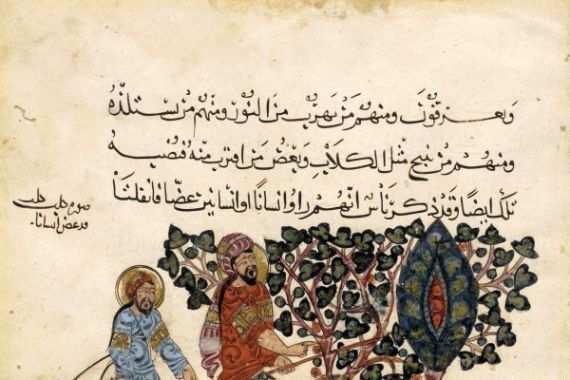 ويعرقون ومنهم من يهرب من النور ومنهم من يستلذه
ومنهم من ينبح مثل الكلاب وبعض من اقترب منه فنصبه
ايضا وقد ذكر ناس انهم راوا انسانا او انسانين عضا فانفلتا
صورة كلب كلب
قد عض انسانا